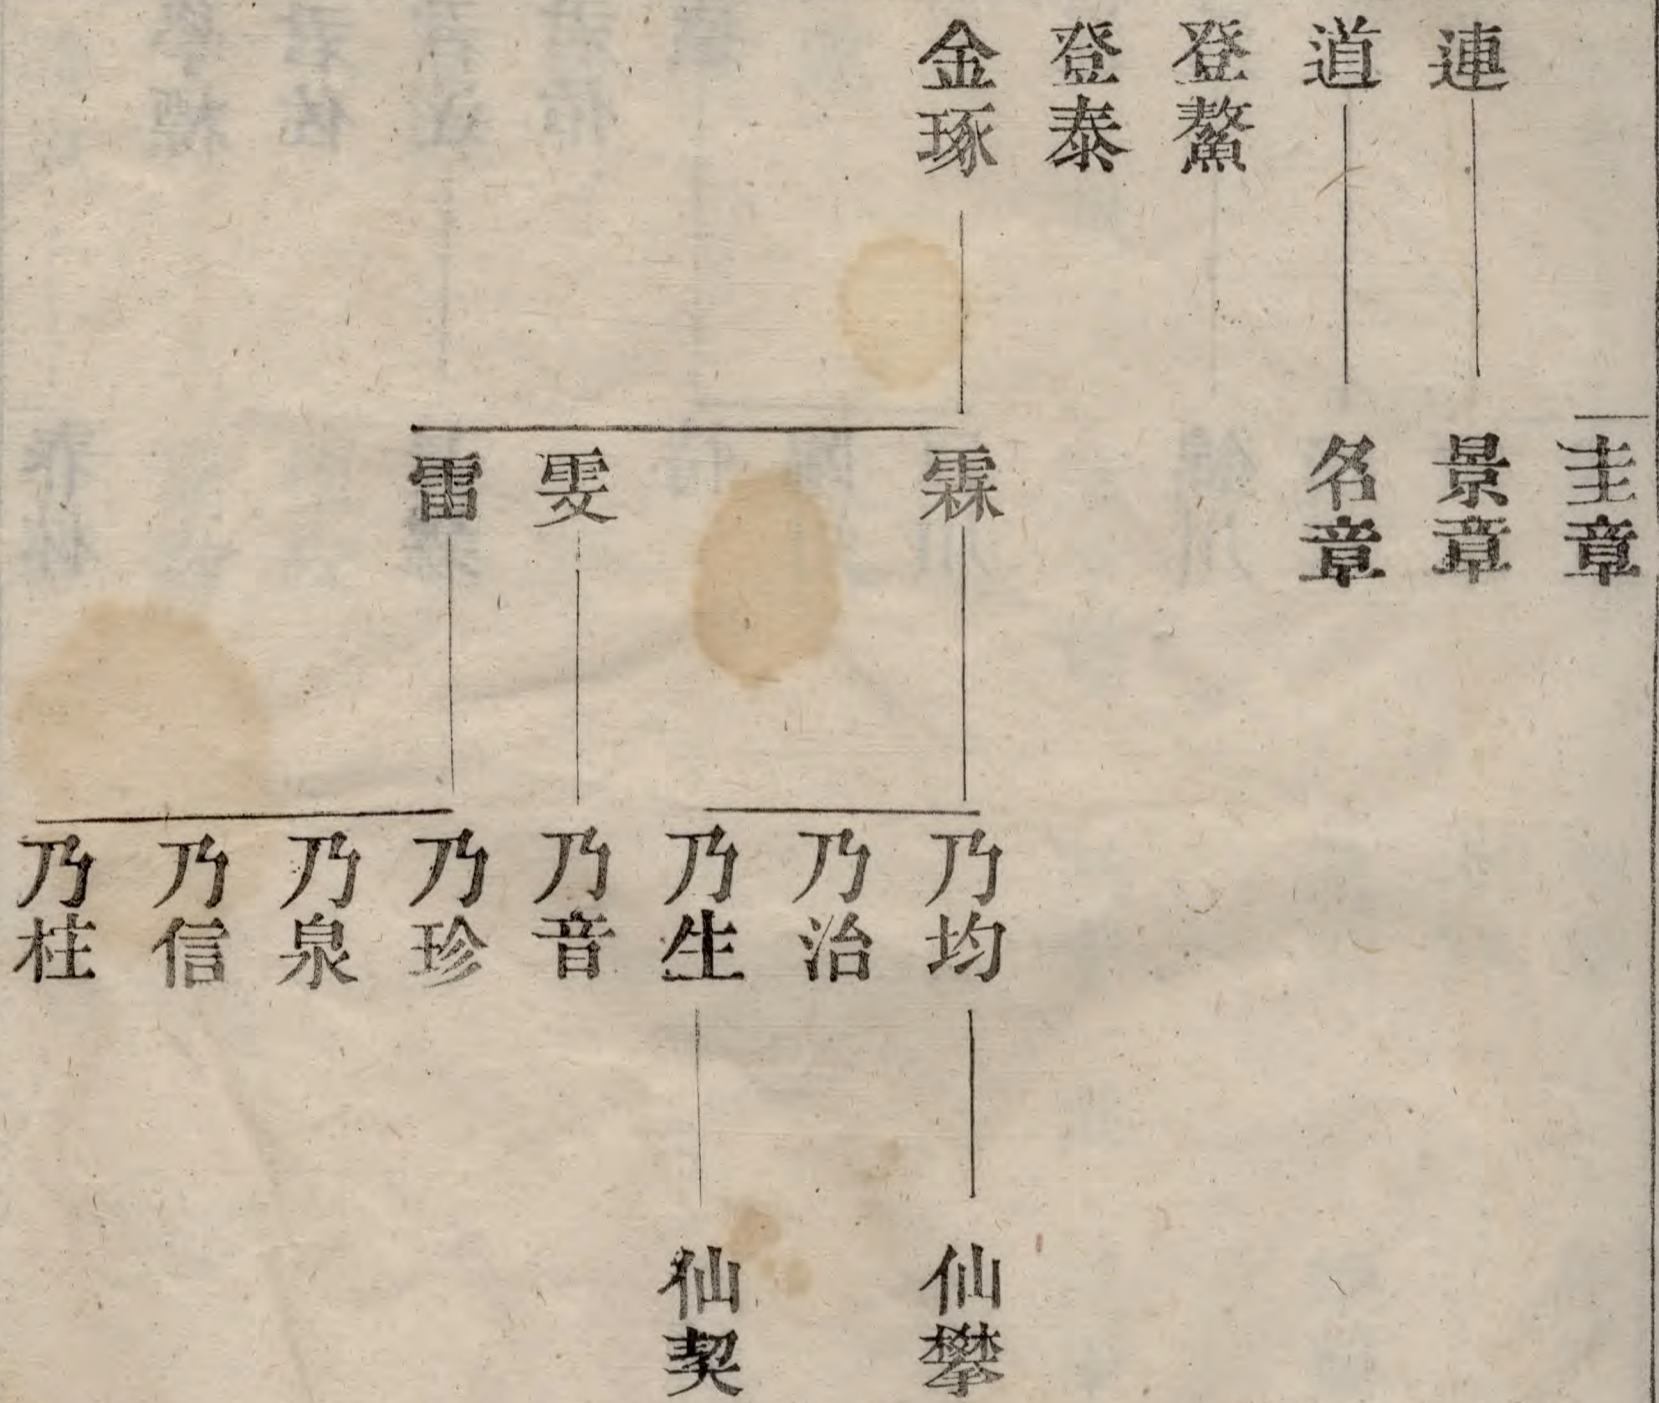 連
道
登鰲
登泰
金琢
圭章
景章
名章
霖
雯
雷
乃均
乃治
乃生
乃音
乃珍
乃泉
乃信
乃柱
仙攀
仙契